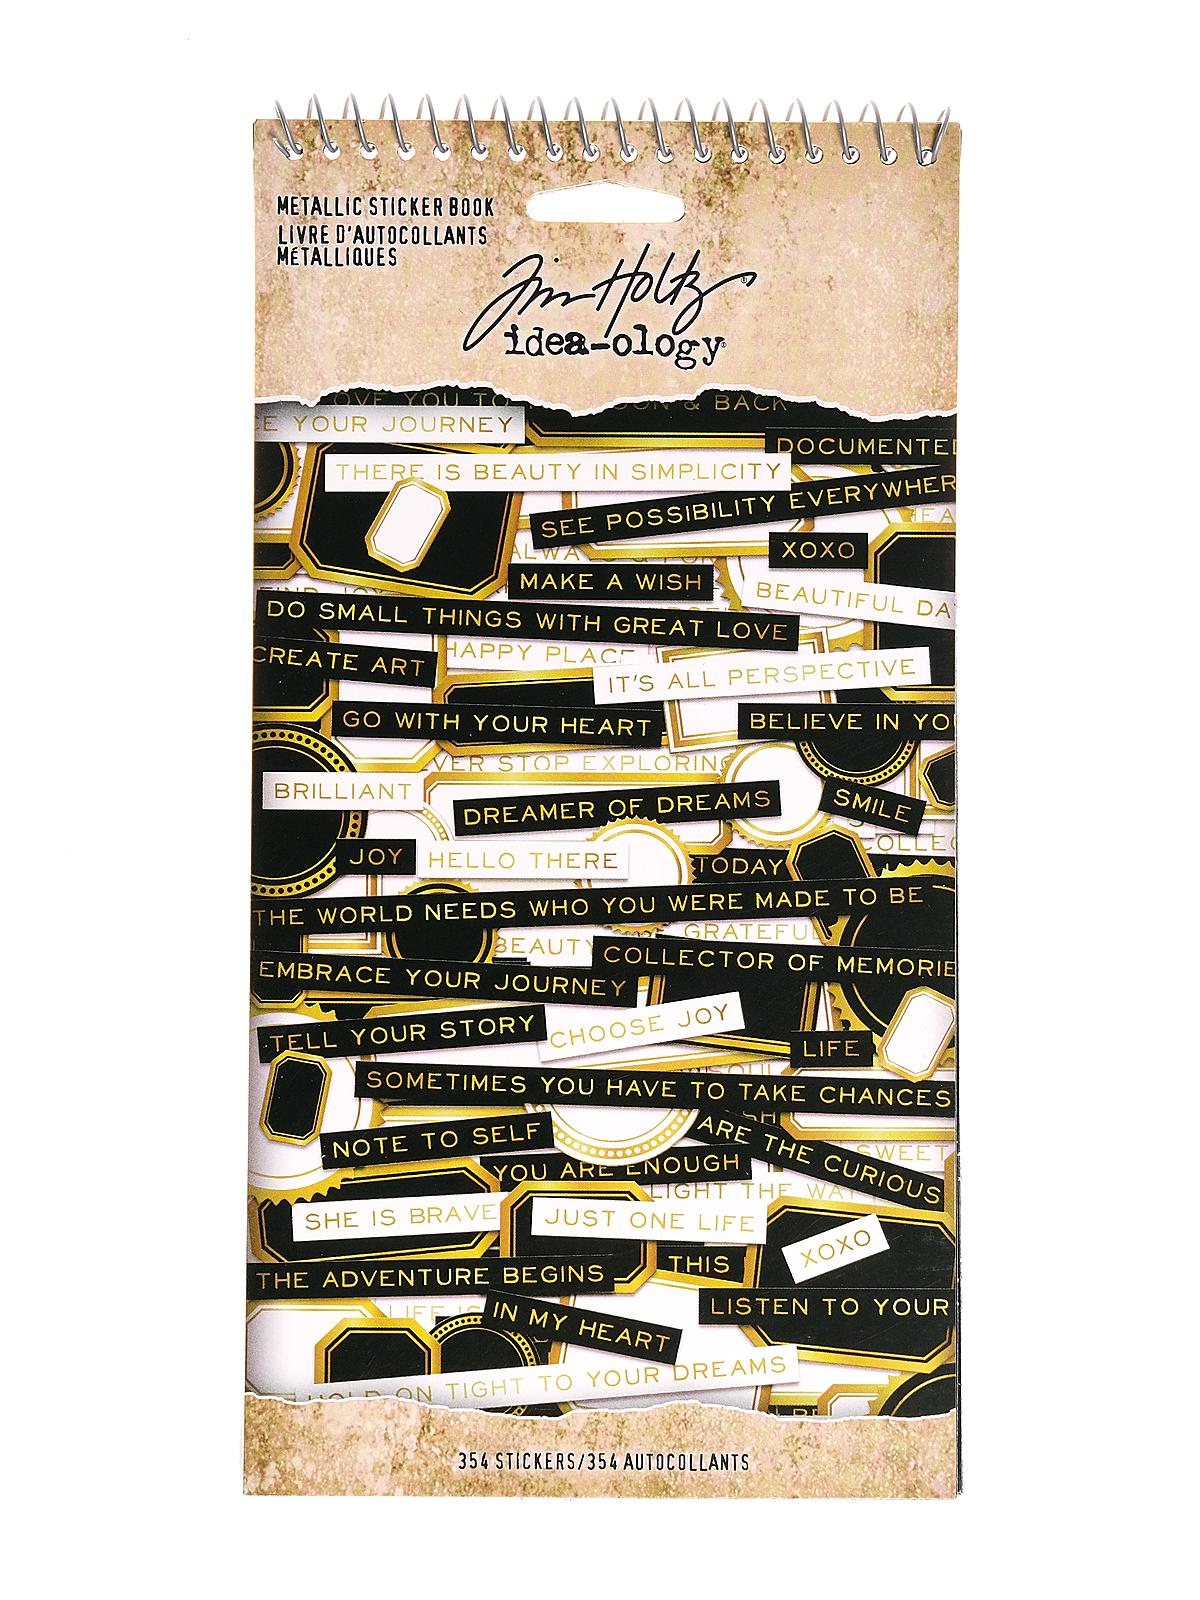 METALLIC STICKER BOOK
LIVRE D'AUTOCOLLANTS
MÉTALLIQUES
Tim Holtz
idea-ology
OVE YOU TO
& BACK
CE YOUR JOURNEY
DOCUMENTED
THERE IS BEAUTY IN SIMPLICITY
SEE POSSIBILITY EVERYWHER
XOXO
MAKE A WISH
BEAUTIFUL DA
DO SMALL THINGS WITH GREAT LOVE
HAPPY PLACE
CREATE ART
IT'S ALL PERSPECTIVE
GO WITH YOUR HEART
BELIEVE IN YO
VER STOP EXPLORING
BRILLIANT
DREAMER OF DREAMS
SMILE
COLLEC
JOY
HELLO THERE
TODAY
THE WORLD NEEDS WHO YOU WERE MADE TO BE
GRATEFUL
BEAUTY
COLLECTOR OF MEMORIE
EMBRACE YOUR JOURNEY
TELL YOUR STORY
CHOOSE JOY
LIFE
SOMETIMES YOU HAVE TO TAKE CHANCES
NOTE TO SELF
ARE THE CURIOUS
SWEET
YOU ARE ENOUGH
LIGHT THE WAY
SHE IS BRAVE
JUST ONE LIFE
XOXO
THE ADVENTURE BEGINS
THIS
LIFE IS
IN MY HEART
LISTEN TO YOUR
HOLD ON TIGHT TO YOUR DREAMS
354 STICKERS/354 AUTOCOLLANTS